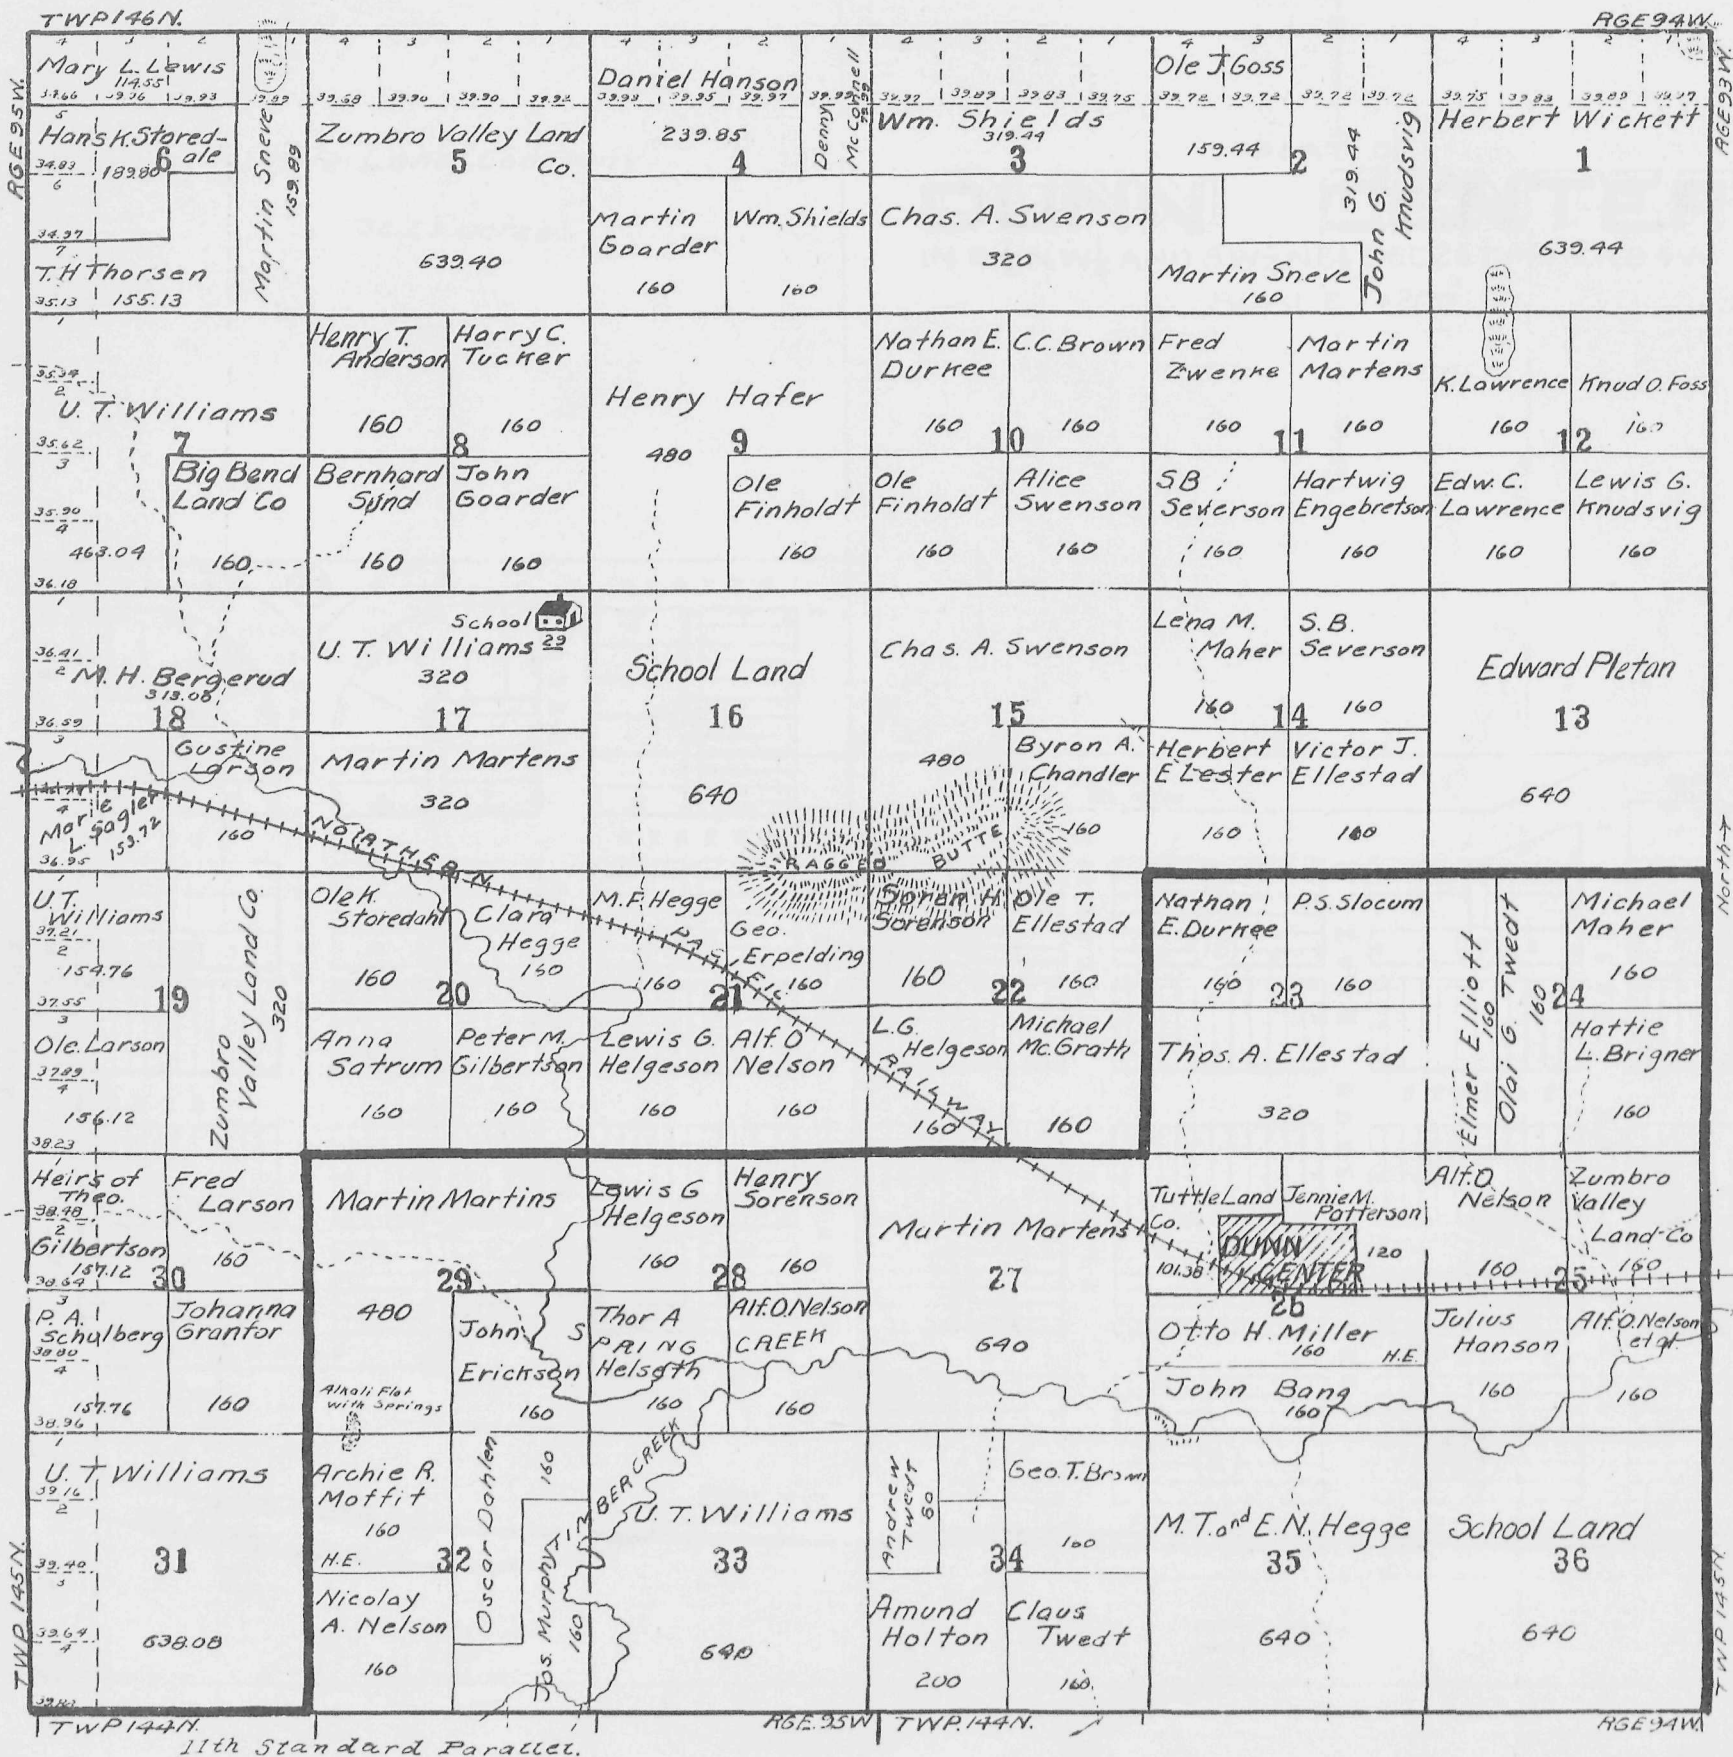 TWP146N. RGE94W.
RGE95W.
RGE93W.
4 3 2 1 4 3 2 1 4 3 2 1 4 3 2 1 4 3 2 1 4 3 2 1
Mary L. Lewis
114.55
34.66 39.96 39.93 39.89
5
Hans K. Stored-
ale
6
34.83 189.80
6
34.97
7
T.H Thorsen
35.13 155.13
Martin Sneve
159.89
39.88 39.90 39.90 39.92
Zumbro Valley Land
Co.
5
639.40
Daniel Hanson
39.93 39.95 39.97 39.99
239.85
4
Denny
McConnell
39.99
Martin
Goarder
160
Wm. Shields
160
39.97 39.89 39.83 39.75
Wm. Shields
319.44
3
Chas. A. Swenson
320
Ole J Goss
39.72 39.72 39.72 39.72
159.44
2
319.44
John G.
Knudsvig
Martin Sneve
160
39.75 39.83 39.89 39.97
Herbert Wickett
1
639.44
1
35.34
2
U. T. Williams
7
35.62
3
35.90
4
463.04
36.18
Big Bend
Land Co
160
Henry T.
Anderson
160
Harry C.
Tucker
160
8
Bernhard
Sund
160
John
Goarder
160
Henry Hafer
480
9
Ole
Finholdt
160
Nathan E.
Durkee
160
C.C. Brown
160
10
Ole
Finholdt
160
Alice
Swenson
160
Fred
Zwenke
160
Martin
Martens
160
11
SB
Severson
160
Hartwig
Engebretson
160
K. Lawrence
160
Knud O. Foss
160
12
Edw. C.
Lawrence
160
Lewis G.
Knudsvig
160
1
36.41
2
M. H. Bergerud
313.08
18
36.59
3
4
Marie
L. Sagler
153.72
36.95
Gustine
Larson
160
School
29
U. T. Williams
320
17
Martin Martens
320
School Land
16
640
Chas. A. Swenson
15
480
Byron A.
Chandler
160
Lena M.
Maher
160
S.B.
Severson
160
14
Herbert
E Lester
160
Victor J.
Ellestad
160
Edward Pletan
13
640
NORTHERN
PACIFIC
RAILWAY
RAGGED BUTTE
North→
U.T.
Williams
37.21
2
159.76
37.55
19
3
Ole. Larson
37.89
4
156.12
38.23
Zumbro
Valley Land Co.
320
Ole K.
Storedahl
160
Clara
Hegge
160
20
Anna
Satrum
160
Peter M.
Gilbertson
160
M.F. Hegge
160
Geo.
Erpelding
160
21
Lewis G.
Helgeson
160
Alf. O
Nelson
160
Soren H
Sorenson
160
Ole T.
Ellestad
160
22
L.G.
Helgeson
160
Michael
McGrath
160
Nathan
E. Durkee
160
P.S. Slocum
160
23
Thos. A. Ellestad
320
Elmer Elliott
160
Olai G. Twedt
160
24
Michael
Maher
160
Hattie
L. Brigner
160
1
Heirs of
Theo.
38.48
2
Gilbertson
157.12
38.64
30
Fred
Larson
160
3
P. A.
Schulberg
38.80
4
157.76
38.96
Johanna
Grantor
160
Martin Martins
29
480
Alkali Flat
with Springs
John S
Erickson
160
Lewis G
Helgeson
160
Henry
Sorenson
160
28
Thor A
PRING
Helseth
160
Alf. O. Nelson
CREEK
160
Martin Martens
27
640
Tuttle Land
Co.
101.38
Jennie M.
Patterson
120
DUNN
CENTER
26
Otto H. Miller
160 H.E.
John Bang
160
Alf. O.
Nelson
160
Zumbro
Valley
Land Co
160
25
Julius
Hanson
160
Alf. O. Nelson
et al
160
1
U. T. Williams
39.16
2
31
39.40
3
39.64
4
638.08
Archie R.
Moffit
160
H.E.
32
Oscar Dahlen
160
Nicolay
A. Nelson
160
Jos. Murphy
160
BER CREEK
U. T. Williams
33
640
Andrew
Twedt
80
Geo. T. Brown
160
34
Amund
Holton
200
Claus
Twedt
160
M. T. and E. N. Hegge
35
640
School Land
36
640
TWP 145N.
TWP 145N.
TWP 144N. RGE. 95W TWP. 144N. RGE94W.
11th Standard Parallel.